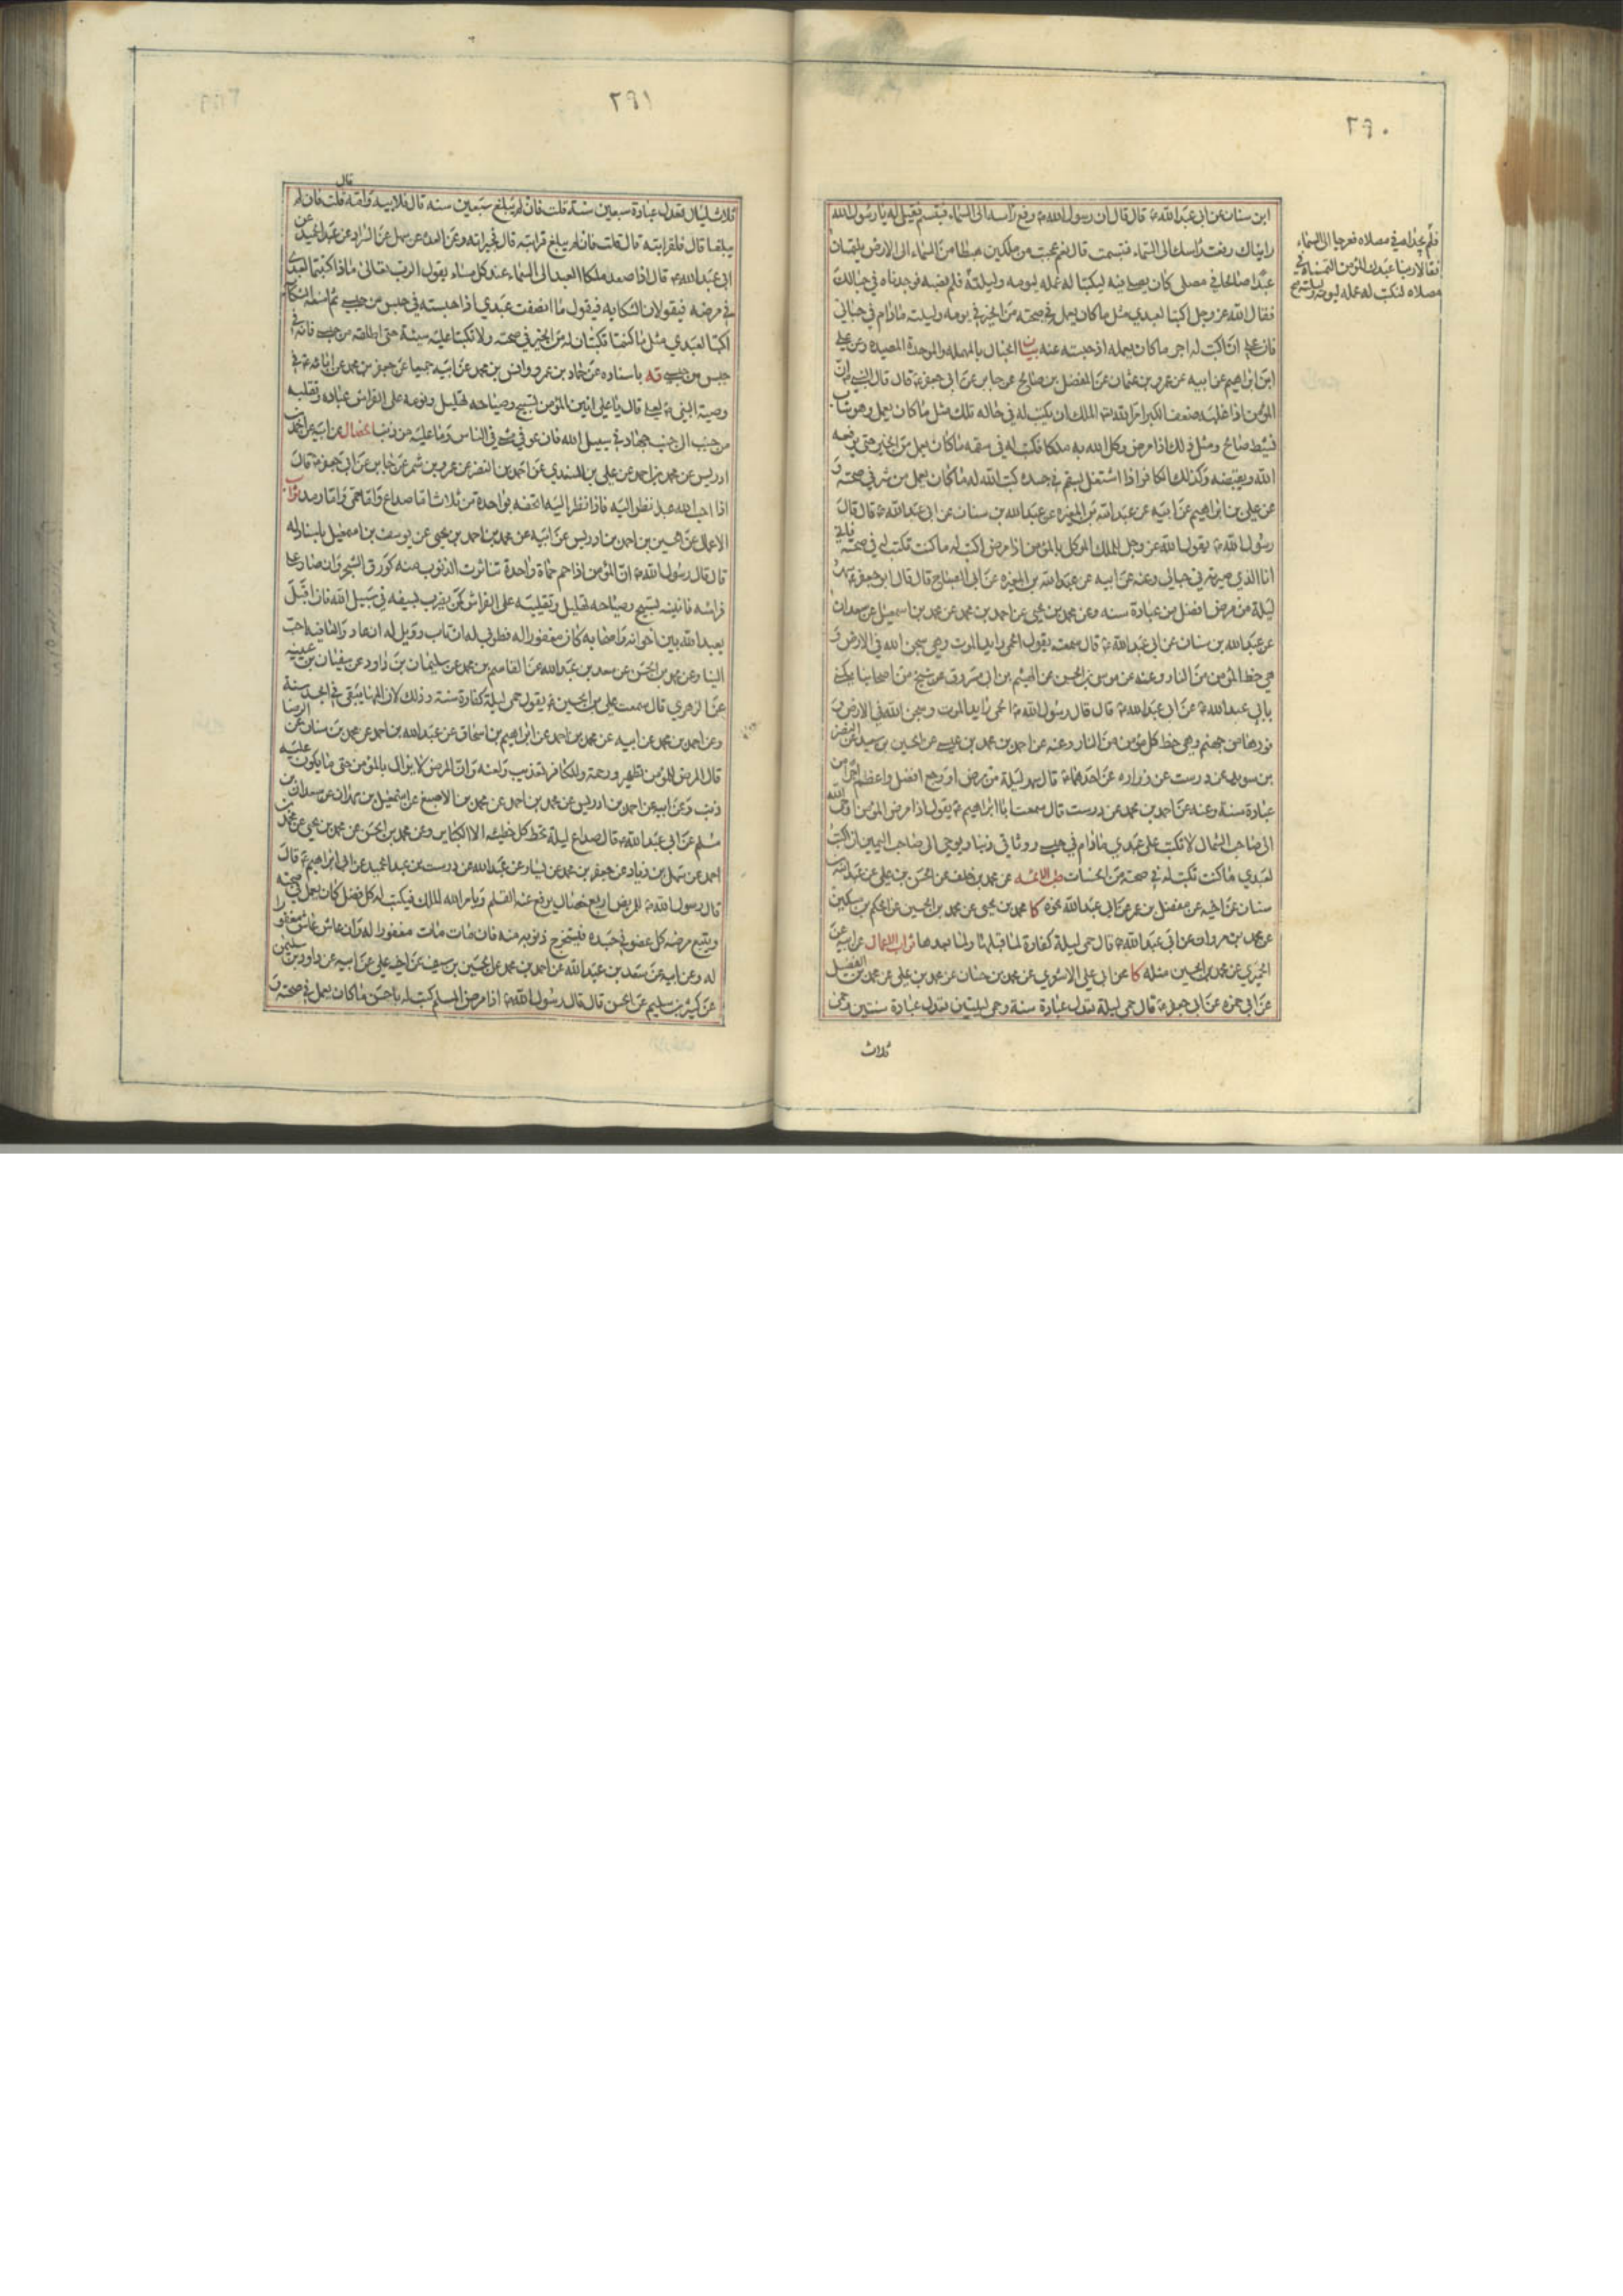 ٢٩٠
ابن سنان عن ابى عبد الله ع قال قال ان رسول الله ص رفع راسه الى السماء فتبسم فقيل له يا رسول الله
رايناك رفعت راسك الى السماء فتبسمت قال نعم عجبت من ملكين هبطا من السماء الى الارض يلتمسان
عبدا صالحا في مصلى كان يصلى فيه ليكتبا له عمله ليومه وليلته فلم
فوجدناه في حبالك
فقال الله عز وجل اكتبا لعبدي مثل ما كان يعمل في صحته من الخير في يومه وليلته ما دام في حبالى
فان على ان اكتب له اجر ما كان يعمله اذ حبسته عنه بيان الحبال بالمهمله والموحدة المصيده وعن على
ابن ابراهيم عن ابيه عن عمرو بن عثمان عن المفضل بن صالح عن جابر عن ابى جعفر ع قال قال النبي ص ان
المؤمن اذا غلبه ضعف الكبر امر الله عز الملك ان يكتب له في حاله تلك مثل ما كان يعمل وهو شاب
نشيط صحيح ومثل ذلك اذا مرض وكل الله به ملكا فكتب له في سقمه ما كان يعمل من الخير حتى يرفعه
الله ويقبضه وكذلك الكافر اذا اشتغل بسقم في جسده كتب الله له ما كان يعمل من شر في صحته و
عن على بن ابراهيم عن ابيه عن عبد الله بن المغيره عن عبد الله بن سنان عن ابى عبد الله ع قال قال
رسول الله ص يقول الله عز وجل للملك الموكل بالمؤمن اذا مرض اكتب له ما كنت تكتب له في صحته فانى
انا الذي صيرته في حبالى وعنه عن ابيه عن عبد الله بن المغيره عن ابى الصباح قال قال ابو جعفر ع سهر
ليلة من مرض افضل من عبادة سنه وعن محمد بن يحيى عن احمد بن محمد عن محمد بن اسمعيل عن سعدان
عن عبد الله بن سنان عن ابى عبد الله ع قال سمعته يقول الحمى رايد الموت وهي سجن الله في الارض و
هي حظ المؤمن من النار وعنه عن موسى بن الحسن عن الهيثم بن ابى مسروق عن شيخ من اصحابنا يكنى
بابى عبد الله ع عن ابى عبد الله ع قال قال رسول الله ص الحمى رايد الموت وسجن الله في الارض و
فورها من جهنم وهي حظ كل مؤمن من النار وعنه عن احمد بن محمد بن عيسى عن الحسين بن سعيد عن النضر
بن سويد عن درست عن زراره عن احدهما ع قال سهر ليلة من مرض او وجع افضل واعظم اجرا من
عبادة سنة وعنه عن احمد بن محمد عن درست قال سمعت ابا ابراهيم ع يقول اذا مرض المؤمن اوحى الله
الى صاحب الشمال لا تكتب على عبدي ما دام في حبسى ووثاقى ذنبا ويوحى الى صاحب اليمين ان اكتب
لعبدي ما كنت تكتب له في صحته من الحسنات طب الائمه عن محمد بن خلف عن الحسن بن على عن عبد الله بن
سنان عن اخيه عن مفضل بن عمر عن ابى عبد الله نحوه كا محمد بن يحيى عن محمد بن الحسين عن الحكم بن مسكين
عن محمد بن مروان عن ابى عبد الله ع قال حمى ليلة كفارة لما قبلها ولما بعدها ثواب الاعمال عن ابيه عن
الحميري عن محمد بن الحسين مثله كا عن ابى على الاشعري عن محمد بن حسان عن محمد بن على عن محمد بن الفضيل
عن ابى حمزه عن ابى جعفر ع قال حمى ليلة تعدل عبادة سنة وحمى ليلتين تعدل عبادة سنتين وحمى
ثلاث
فلم يجداه في مصلاه فعرجا الى السماء
فقالا ربنا عبدك المؤمن التمسناه في
مصلاه لنكتب له عمله ليومه وليلته
٢٩١
قال
ثلاث ليال تعدل عبادة سبعين سنة قلت فان لم يبلغ سبعين سنه قال فلابيه وامه قلت فان لم
يبلغا قال فلقرابته قال قلت فان لم يبلغ قرابته قال فجيرانه وعن العده عن سهل عن عبد الحميد عن
ابى عبد الله ع قال اذا صعد ملكا العبد الى السماء عند كل مساء يقول الرب تعالى ماذا كتبتما لعبدي
في مرضه فيقولان الشكايه فيقول ما انصفت عبدي اذا حبسته في حبس من حبسى ثم امنعه الشكاية
اكتبا لعبدي مثل ما كنتما تكتبان له من الخير في صحته ولا تكتبا عليه سيئة حتى اطلقه من حبسى فانه في
حبس من حبسى يه باسناده عن حماد بن عمرو وانس بن محمد عن ابيه جميعا عن جعفر بن محمد عن ابائه ع في
وصية النبى ص لعلى قال يا على انين المؤمن تسبيح وصياحه تهليل ونومه على الفراش عباده وتقلبه
من جنب الى جنب جهاد في سبيل الله فان عوفى مشى في الناس وما عليه من ذنب الخصال عن ابيه عن احمد بن
ادريس عن محمد بن احمد عن على بن السندي عن احمد بن النضر عن عمرو بن شمر عن جابر عن ابى جعفر ع قال
اذا احب الله عبدا نظر اليه فاذا نظر اليه اتحفه بواحدة من ثلاث اما صداع واما حمى واما رمد ثواب
الاعمال عن الحسين بن احمد بن ادريس عن ابيه عن محمد بن احمد بن يحيى عن يوسف بن اسمعيل باسناد له
قال قال رسول الله ص ان المؤمن اذا حم حماة واحدة تناثرت الذنوب منه كورق الشجر وان صار على
فراشه فانينه تسبيح وصياحه تهليل وتقلبه على الفراش كمن يضرب بسيفه في سبيل الله فان اقبل
يعبد الله بين اخوانه واصحابه كان مغفورا له فطوبى له ان تاب وويل له ان عاد والعافيه احب
الينا وعن محمد بن الحسن عن سعد بن عبد الله عن القاسم بن محمد عن سليمان بن داود عن سفيان بن عيينه
عن الزهري قال سمعت على بن الحسين ع يقول حمى ليلة كفارة سنة وذلك لان المها يبقى في الجسد سنة
وعن احمد بن محمد عن ابيه عن محمد بن احمد عن ابراهيم بن اسحاق عن عبد الله بن احمد عن محمد بن سنان عن الرضا ع
قال المرض للمؤمن تطهير ورحمة وللكافر تعذيب ولعنه وان المرض لا يزال بالمؤمن حتى ما يكون عليه
ذنب وعن ابيه عن احمد بن ادريس عن محمد بن احمد عن محمد بن الاصبغ عن اسمعيل بن مهران عن سعدان بن
مسلم عن ابى عبد الله ع قال صداع ليلة تحط كل خطيئة الا الكباير وعن محمد بن الحسن عن محمد بن يحيى عن محمد بن
احمد عن سهل بن زياد عن جعفر بن محمد عن بشار عن عبد الله عن درست عن عبد الحميد عن ابى ابراهيم ع قال
قال رسول الله ص للمريض اربع خصال يرفع عنه القلم ويامر الله الملك فيكتب له كل فضل كان يعمل في صحته
ويتبع مرضه كل عضو في جسده فيستخرج ذنوبه منه فان مات مات مغفورا له وان عاش عاش مغفورا
له وعن ابيه عن سعد بن عبد الله عن احمد بن محمد عن الحسين بن سيف عن اخيه على عن ابيه عن داود بن سليمن
عن كثير بن سليم عن الحسن قال قال رسول الله ص اذا مرض المسلم كتب له باحسن ما كان يعمل في صحته و